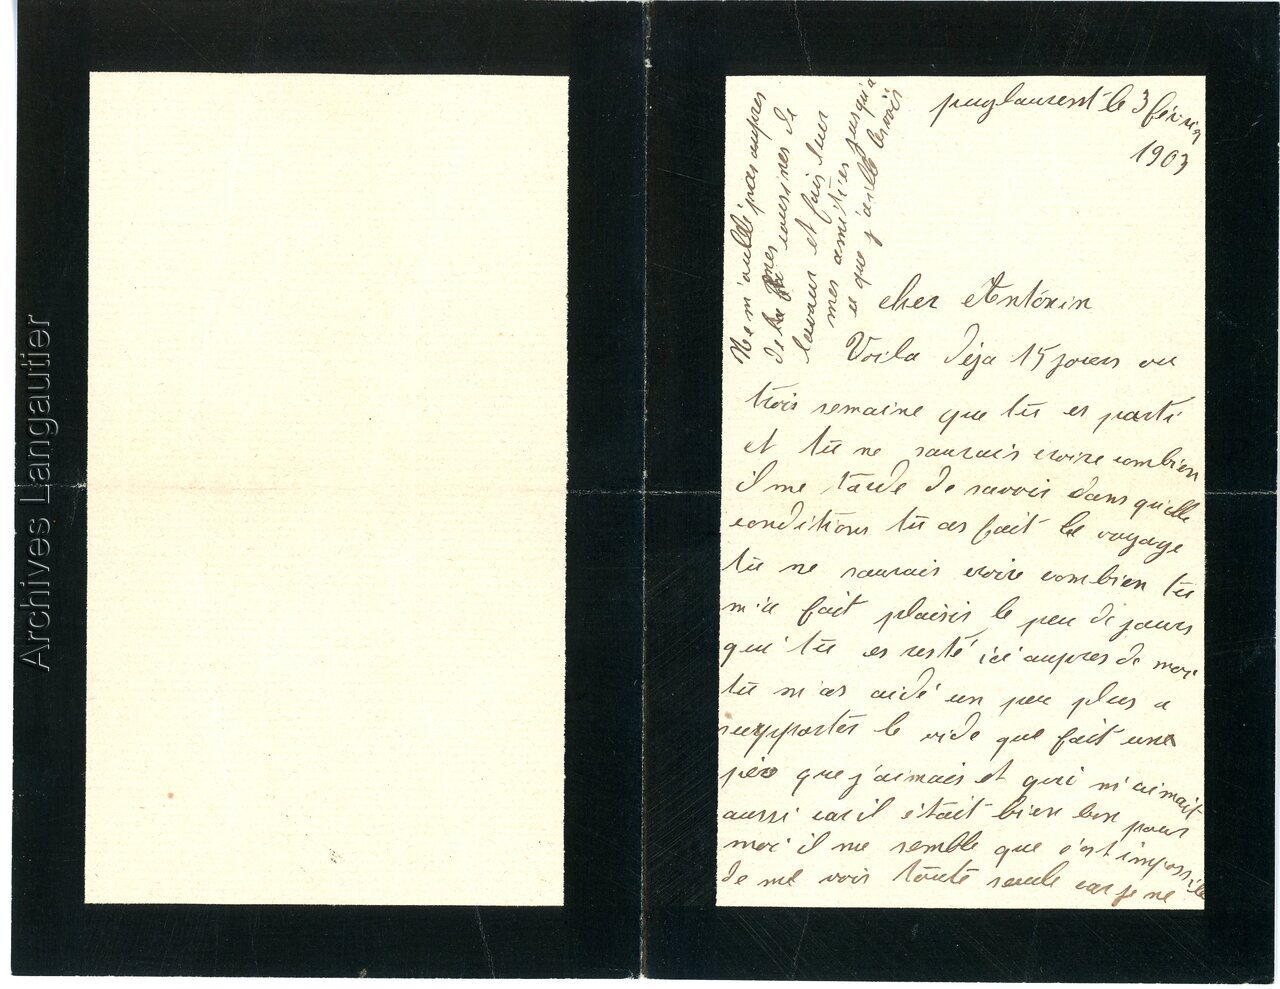 puylaurent le 3 février
1903
Ne m'oublie pas aupres
de mes cousines de
lavaur et fais leur
mes amitiés jusqu'a
ce que j'aille les voir
cher Antonin
Voila deja 15 jours ou
trois semaine que tu es parti
et tu ne saurais croire combien
il me tarde de savoir dans quelle
conditions tu as fait le voyage
tu ne saurais croire combien tu
m'a fait plaisir le peu de jours
qui tu es resté ici aupres de moi
tu m'as aidé un peu plus a
supporter le vide que fait une
père que j'aimais et qui m'aimait
aussi car il était bien bon pour
moi il me semble que c'est impossible
de me voir toute seule car je ne
Archives Langautier